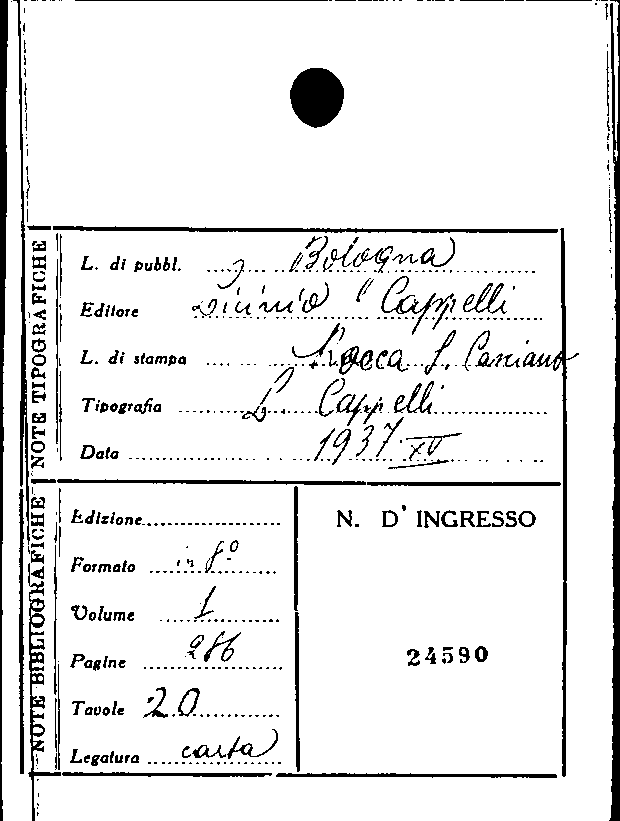 NOTE TIPOGRAFICHE
L. di pubbl. Bologna
Editore Licinio Cappelli
L. di stampa Rocca S. Casciano
Tipografia L. Cappelli
Data 1937 XV
NOTE BIBLIOGRAFICHE
Edizione
Formato in 8º
Volume 1
Pagine 286
Tavole 20
Legatura carta
N. D' INGRESSO
24590